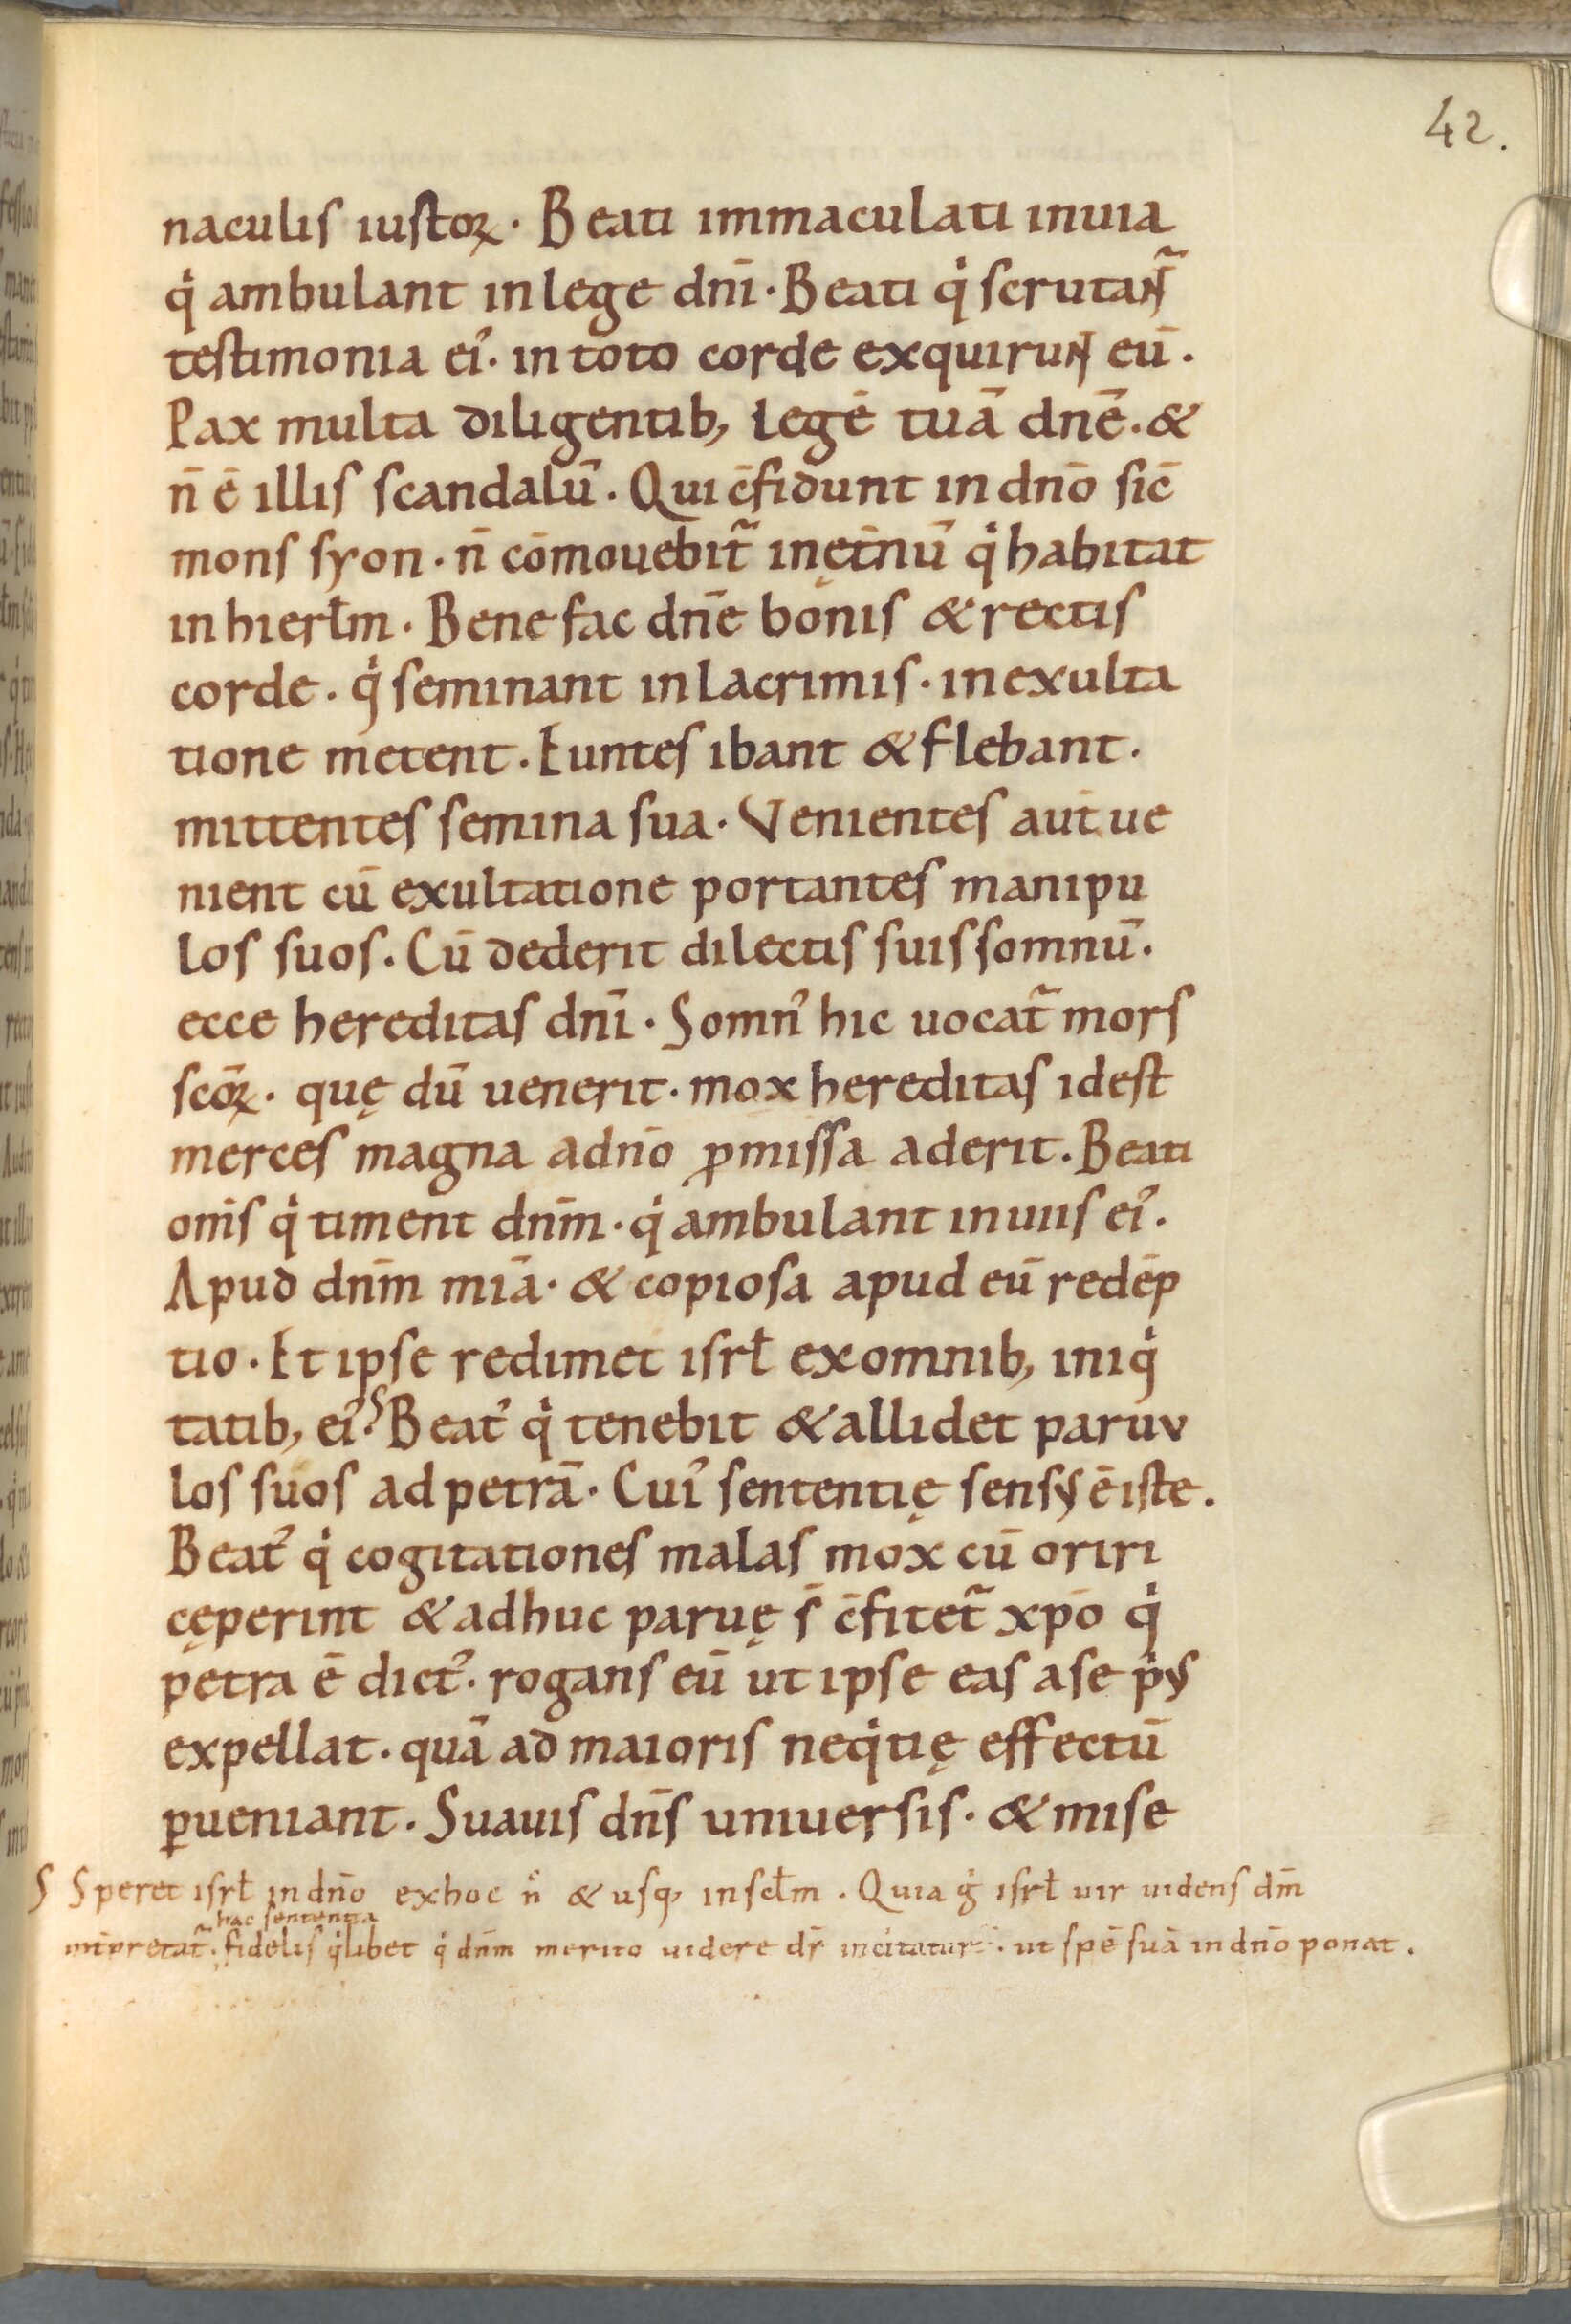 42.
naculis iustoꝝ. Beati immaculati inuia
qͥ ambulant inlege dnī. Beati qͥ scrutaɴ̃t
testimonia ei᾽. in toto corde exquiruɴt eū.
Pax multa diligentib, legē tuā dnē. &
n̄ ē illis scandalū. Qui c̄fidunt in dnō sic̄
mons syon. n̄ cōmouebit̃ inęt̄nū qͥ habitat
inhierłm. Bene fac dnē bonis & rectis
corde. qͥ seminant inlacrimis. inexulta
tione metent. Euntes ibant & flebant.
mittentes semina sua. Venientes aut̄ ue
nient cū exultatione portantes manipu
los suos. Cū dederit dilectis suis somnū.
ecce hereditas dnī. Somn᾽ hic uocat̃ mors
scōꝝ. quę dū uenerit. mox hereditas idest
merces magna adnō ꝓmissa aderit. Beati
om̄s qͥ timent dnm̄. qͥ ambulant inuiis ei᾽.
Apud dnm̄ miā. & copiosa apud eū redēp
tio. Et ipse redimet isrł exomnib, iniqͥ
tatib, ei᾽. S Beat᾽ qͥ tenebit & allidet paruu
los suos ad petrā. Cui᾽ sententię sensus ē iste.
Beat᾽ qͥ cogitationes malas mox cū oriri
cęperint & adhuc paruę s̄ c̄fitet̃ xpō qͥ
petra ē dict᾽. rogans eū ut ipse eas ase pͥus
expellat. quā ad maioris neqͥtię effectū
ꝑueniant. Suauis dn̄s uniuersis. & mise
S Speret isrł in dnō exhoc nͨ & usq, insclm̄. Quia gͥ isrł uir uidens dm̄
hac sententia
int̄pretat̃. fidelis qͥlibet qͥ dnm̄ merito uidere dr̄ incitatur. ut spē suā in dnō ponat.